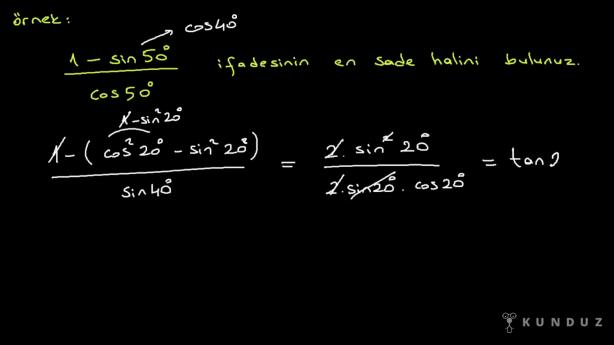 örnek:
cos40°
1 - sin50° / cos50° ifadesinin en sade halini bulunuz.
1-sin²20°
1-(cos²20° - sin²20°) / sin40° = 2.sin²20° / 2.sin20°.cos20° = tan2
KUNDUZ